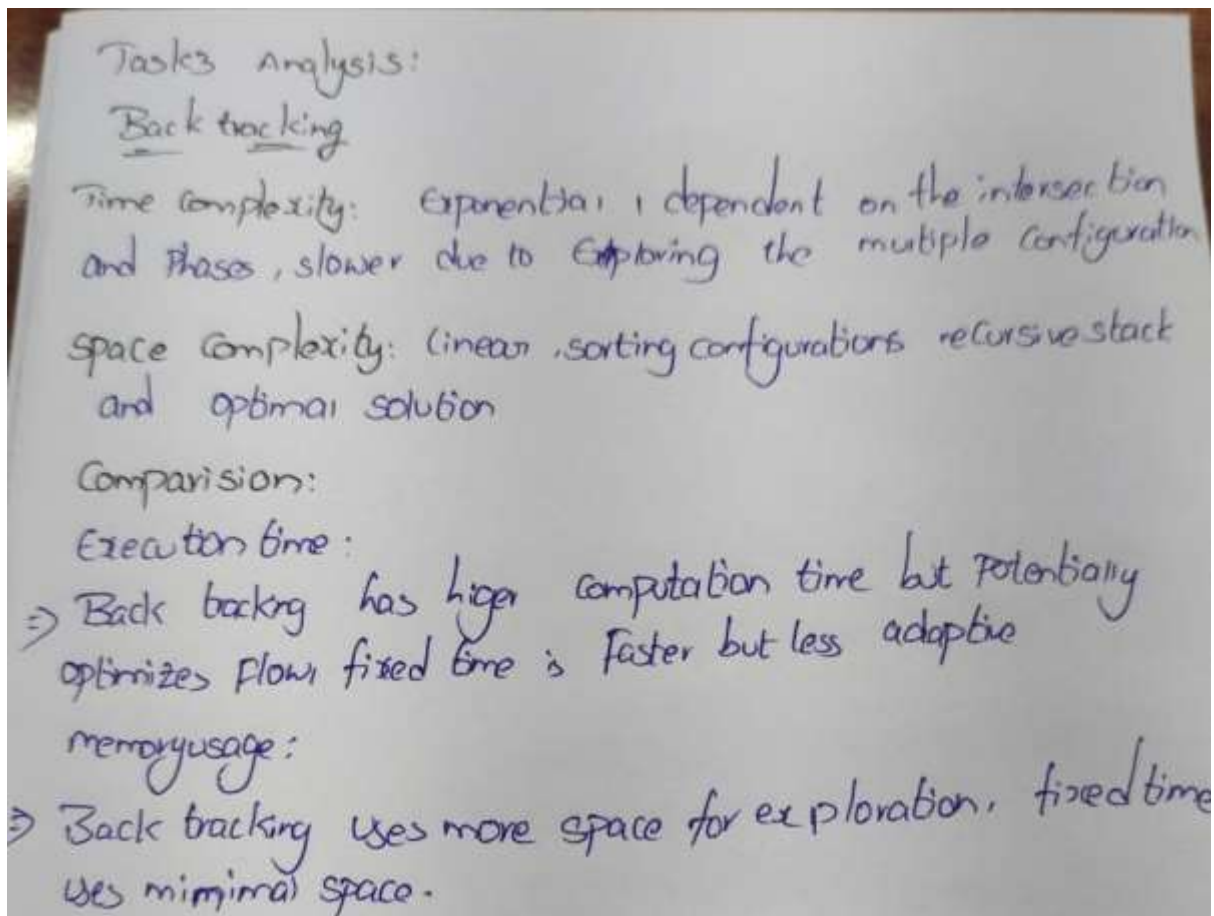 Task3 Analysis:
Back tracking
Time complexity: Exponential, dependent on the intersection
and Phases, slower due to Exploring the multiple configuration
space complexity: linear, sorting configurations recursive stack
and optimal solution
Comparision:
Execution time:
⇒ Back tracking has higer computation time but Potentially
optimizes flow, fixed time is Faster but less adaptive
memoryusage:
⇒ Back tracking uses more space for exploration, fixed time
uses mimimal space.